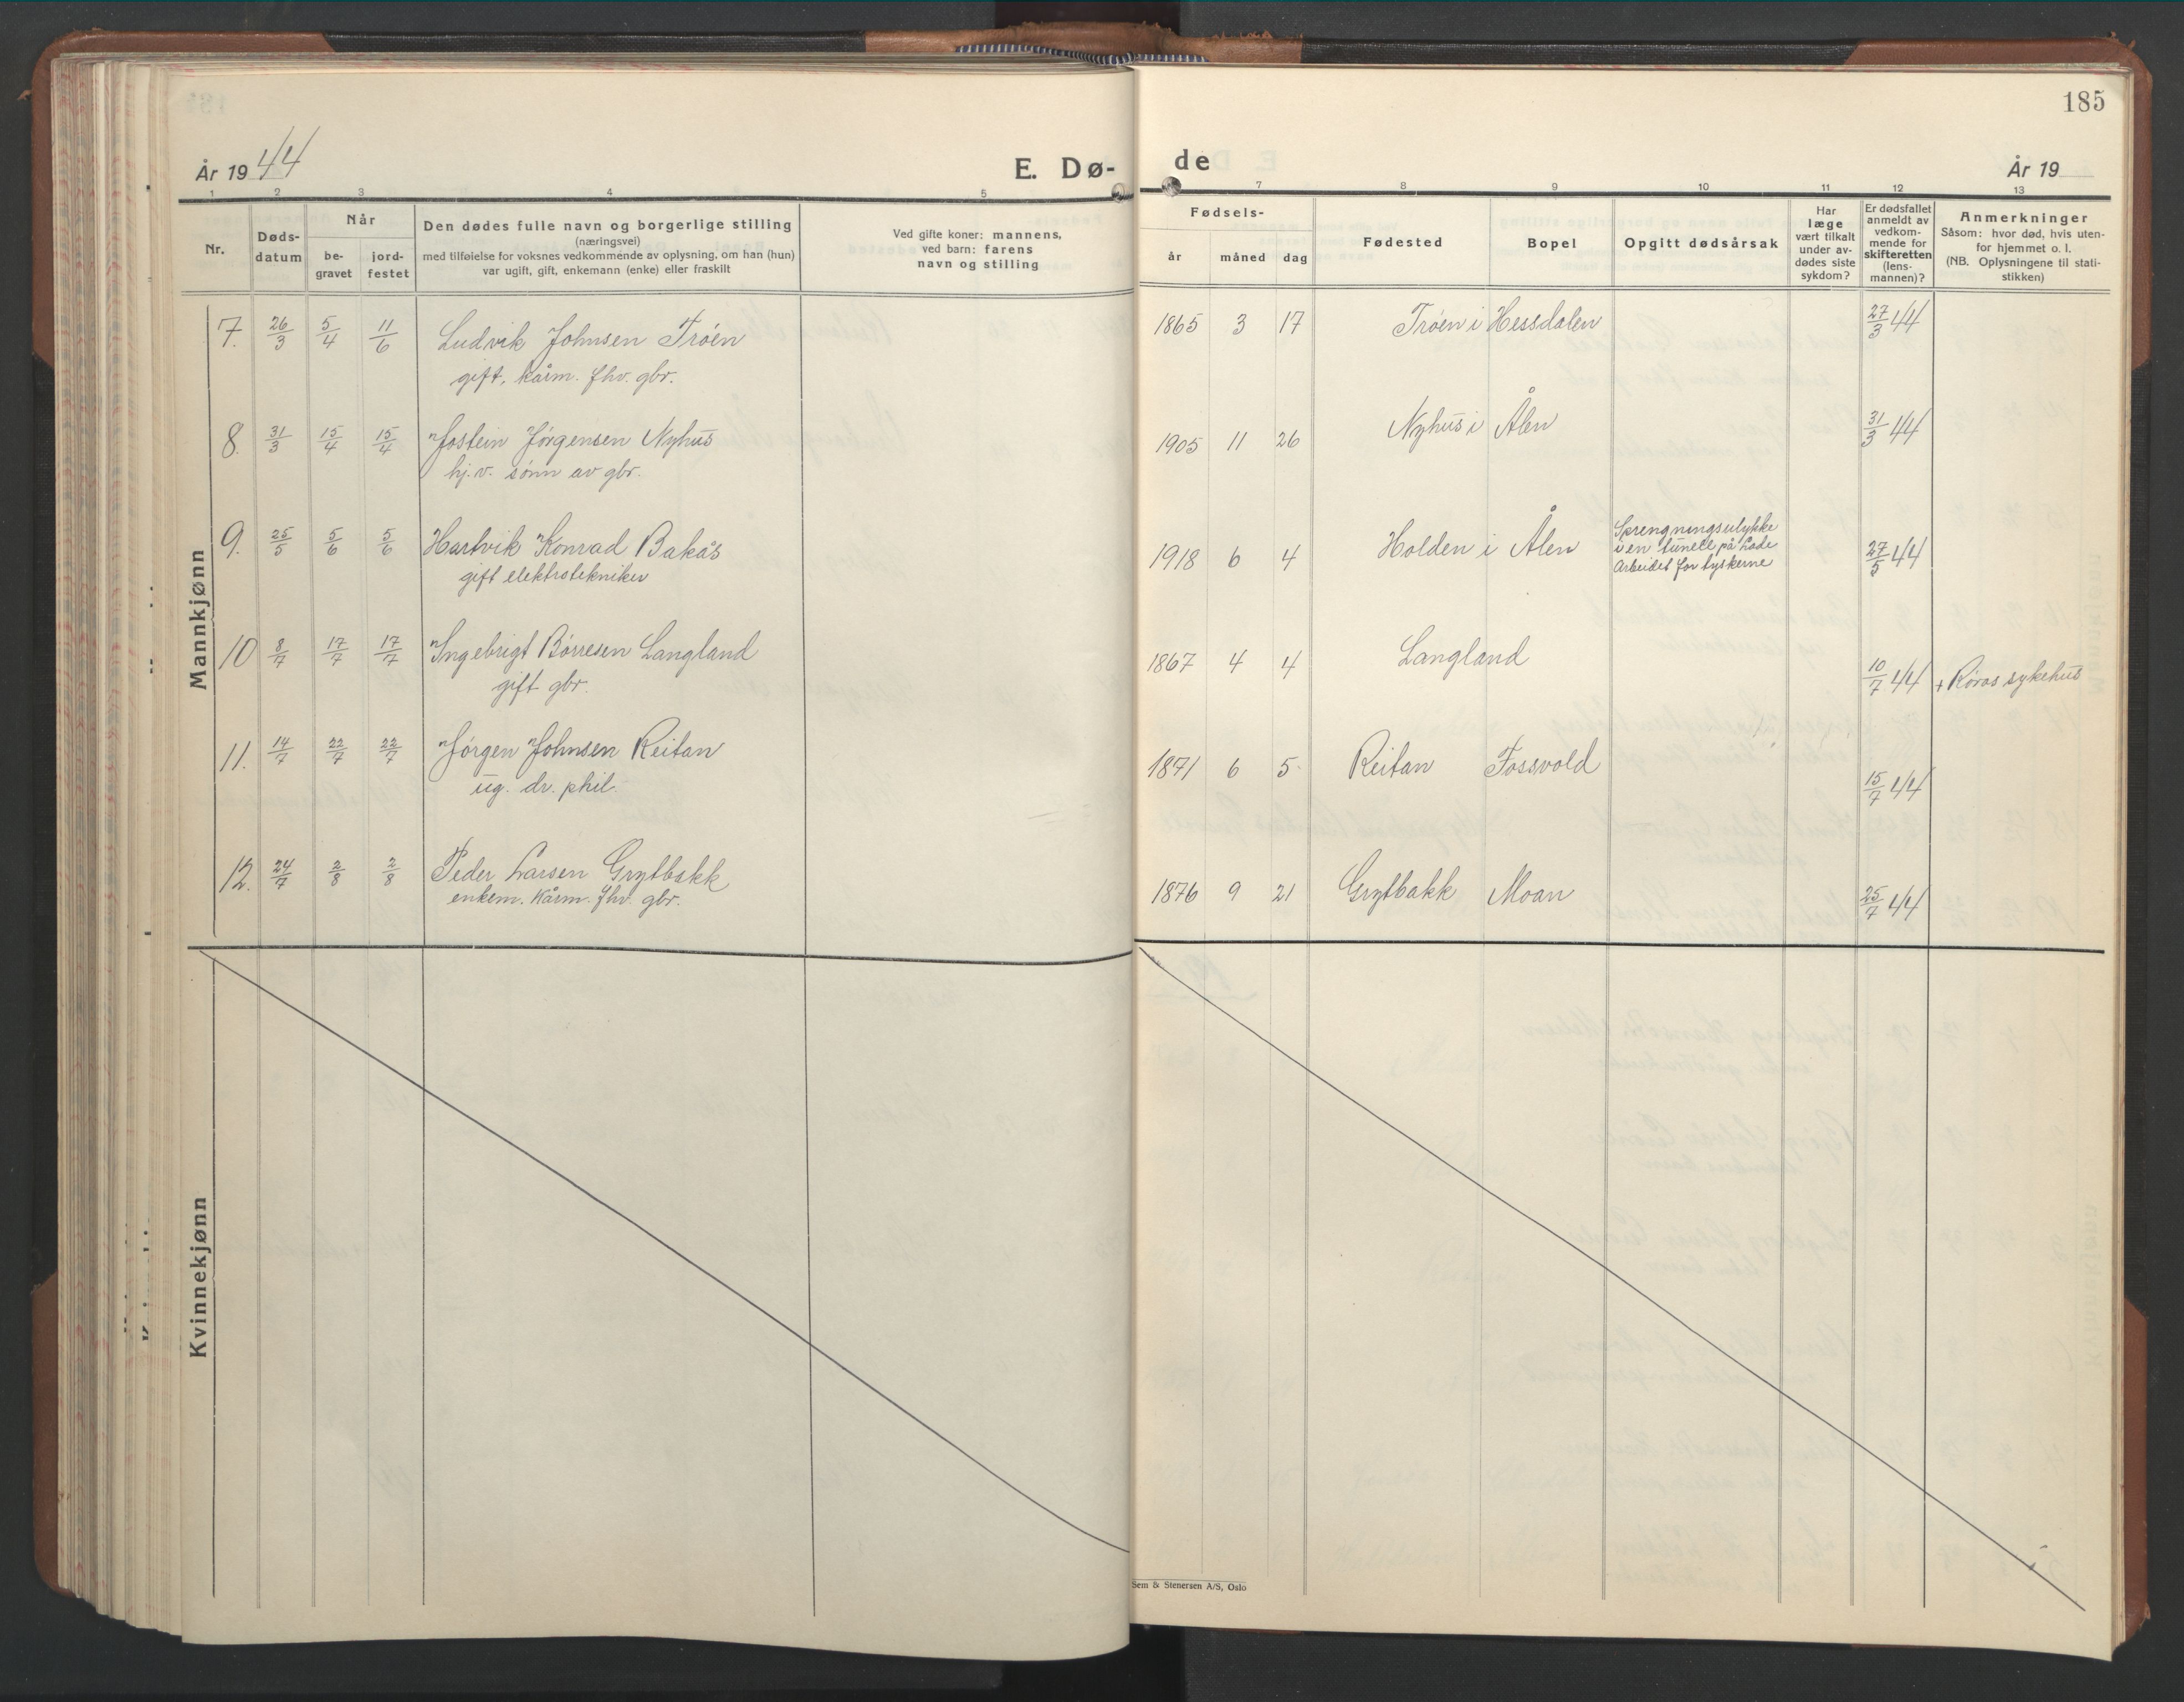 185
År 1944
E. Dø-
de
År 19
1 2 3 4 5
7 8 9 10 11 12 13
Nr.
Døds-
datum
Når
be-
gravet
jord-
festet
Den dødes fulle navn og borgerlige stilling
(næringsvei)
med tilføielse for voksnes vedkommende av oplysning, om han (hun)
var ugift, gift, enkemann (enke) eller fraskilt
Ved gifte koner: mannens,
ved barn: farens
navn og stilling
Fødsels-
år måned dag
Fødested
Bopel
Opgitt dødsårsak
Har
læge
vært tilkalt
under av-
dødes siste
sykdom?
Er dødsfallet
anmeldt av
vedkom-
mende for
skifteretten
(lens-
mannen)?
Anmerkninger
Såsom: hvor død, hvis uten-
for hjemmet o. l.
(NB. Oplysningene til stati-
stikken)
Mannkjønn
7. 26/3 5/4 11/6 Ludvik Johnsen Trøen 1865 3 17 Trøen i Hessdalen 27/3 44
gift, kårm. fhv. gbr.
8. 31/3 15/4 15/4 Jostein Jørgensen Nyhus 1905 11 26 Nyhus i Ålen 31/3 44
hj.v. sønn av gbr.
9. 25/5 5/6 5/6 Hartvik Konrad Bakås 1918 6 4 Holden i Ålen 27/5 44
gift elektrotekniker
Sprengningsulykke
i en tunell på Lade
Arbeidet for tyskerne
10 8/7 17/7 17/7 Ingebrigt Børresen Langland 1867 4 4 Langland 10/7 44 + Røros sykehus
gift gbr.
11. 14/7 22/7 22/7 Jørgen Johnsen Reitan 1871 6 5 Reitan Fossvold 15/7 44
ug. dr. phil.
12. 24/7 2/8 2/8 Peder Larsen Grytbakk 1876 9 21 Grytbakk Moan 25/7 44
enkem. kårm. fhv. gbr.
Kvinnekjønn
Sem & Stenersen A/S, Oslo